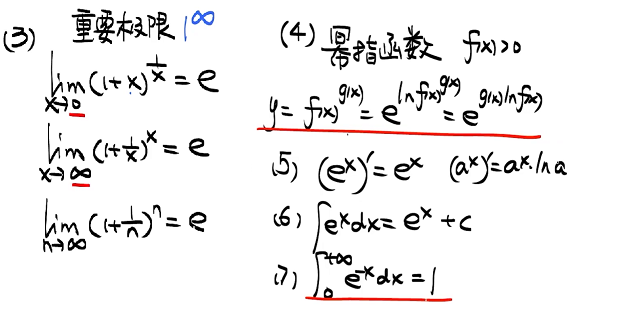 (3) 重要极限 1^∞
lim x→0 (1+x)^(1/x) = e
lim x→∞ (1+1/x)^x = e
lim n→∞ (1+1/n)^n = e
(4) 幂指函数 f(x)>0
y = f(x)^g(x) = e^(ln f(x)^g(x)) = e^(g(x) ln f(x))
(5) (e^x)' = e^x (a^x)' = a^x·ln a
(6) ∫e^x dx = e^x + c
(7) ∫_0^(+∞) e^(-x) dx = 1